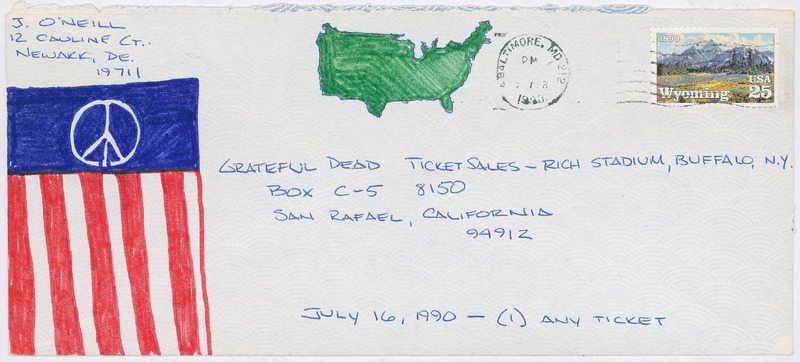 J. O'NEILL
12 CAULINE CT.
NEWARK, DE.
19711
BALTIMORE, MD 212
PM
APR
1990
1890
USA
Wyoming 25
GRATEFUL DEAD TICKET SALES - RICH STADIUM, BUFFALO, N.Y.
BOX C-5 8150
SAN RAFAEL, CALIFORNIA
94912
JULY 16, 1990 - (1) ANY TICKET